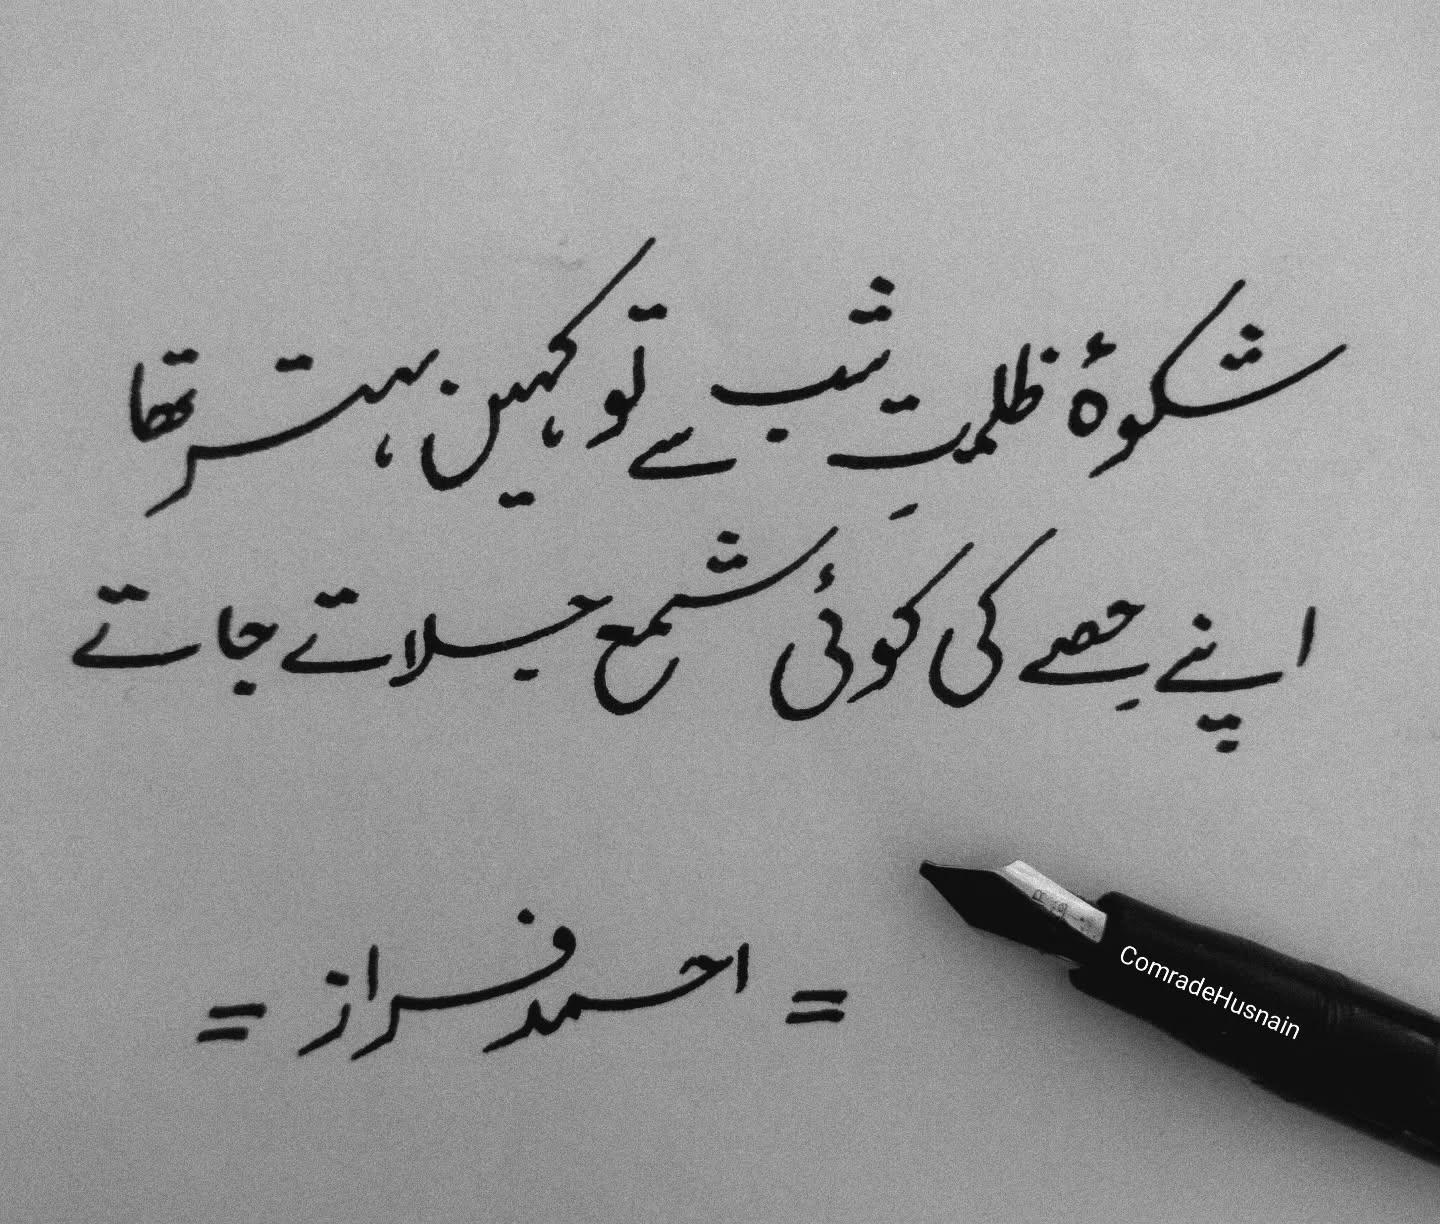 شکوۂ ظلمتِ شب سے تو کہیں بہتر تھا
اپنے حصے کی کوئی شمع جلاتے جاتے
= احمد فراز =
ComradeHusnain